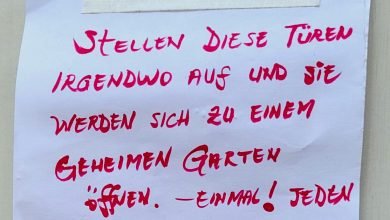 STELLEN DIESE TÜREN
IRGENDWO AUF UND SIE
WERDEN SICH ZU EINEM
GEHEIMEN GARTEN
ÖFFNEN. – EINMAL! JEDEN